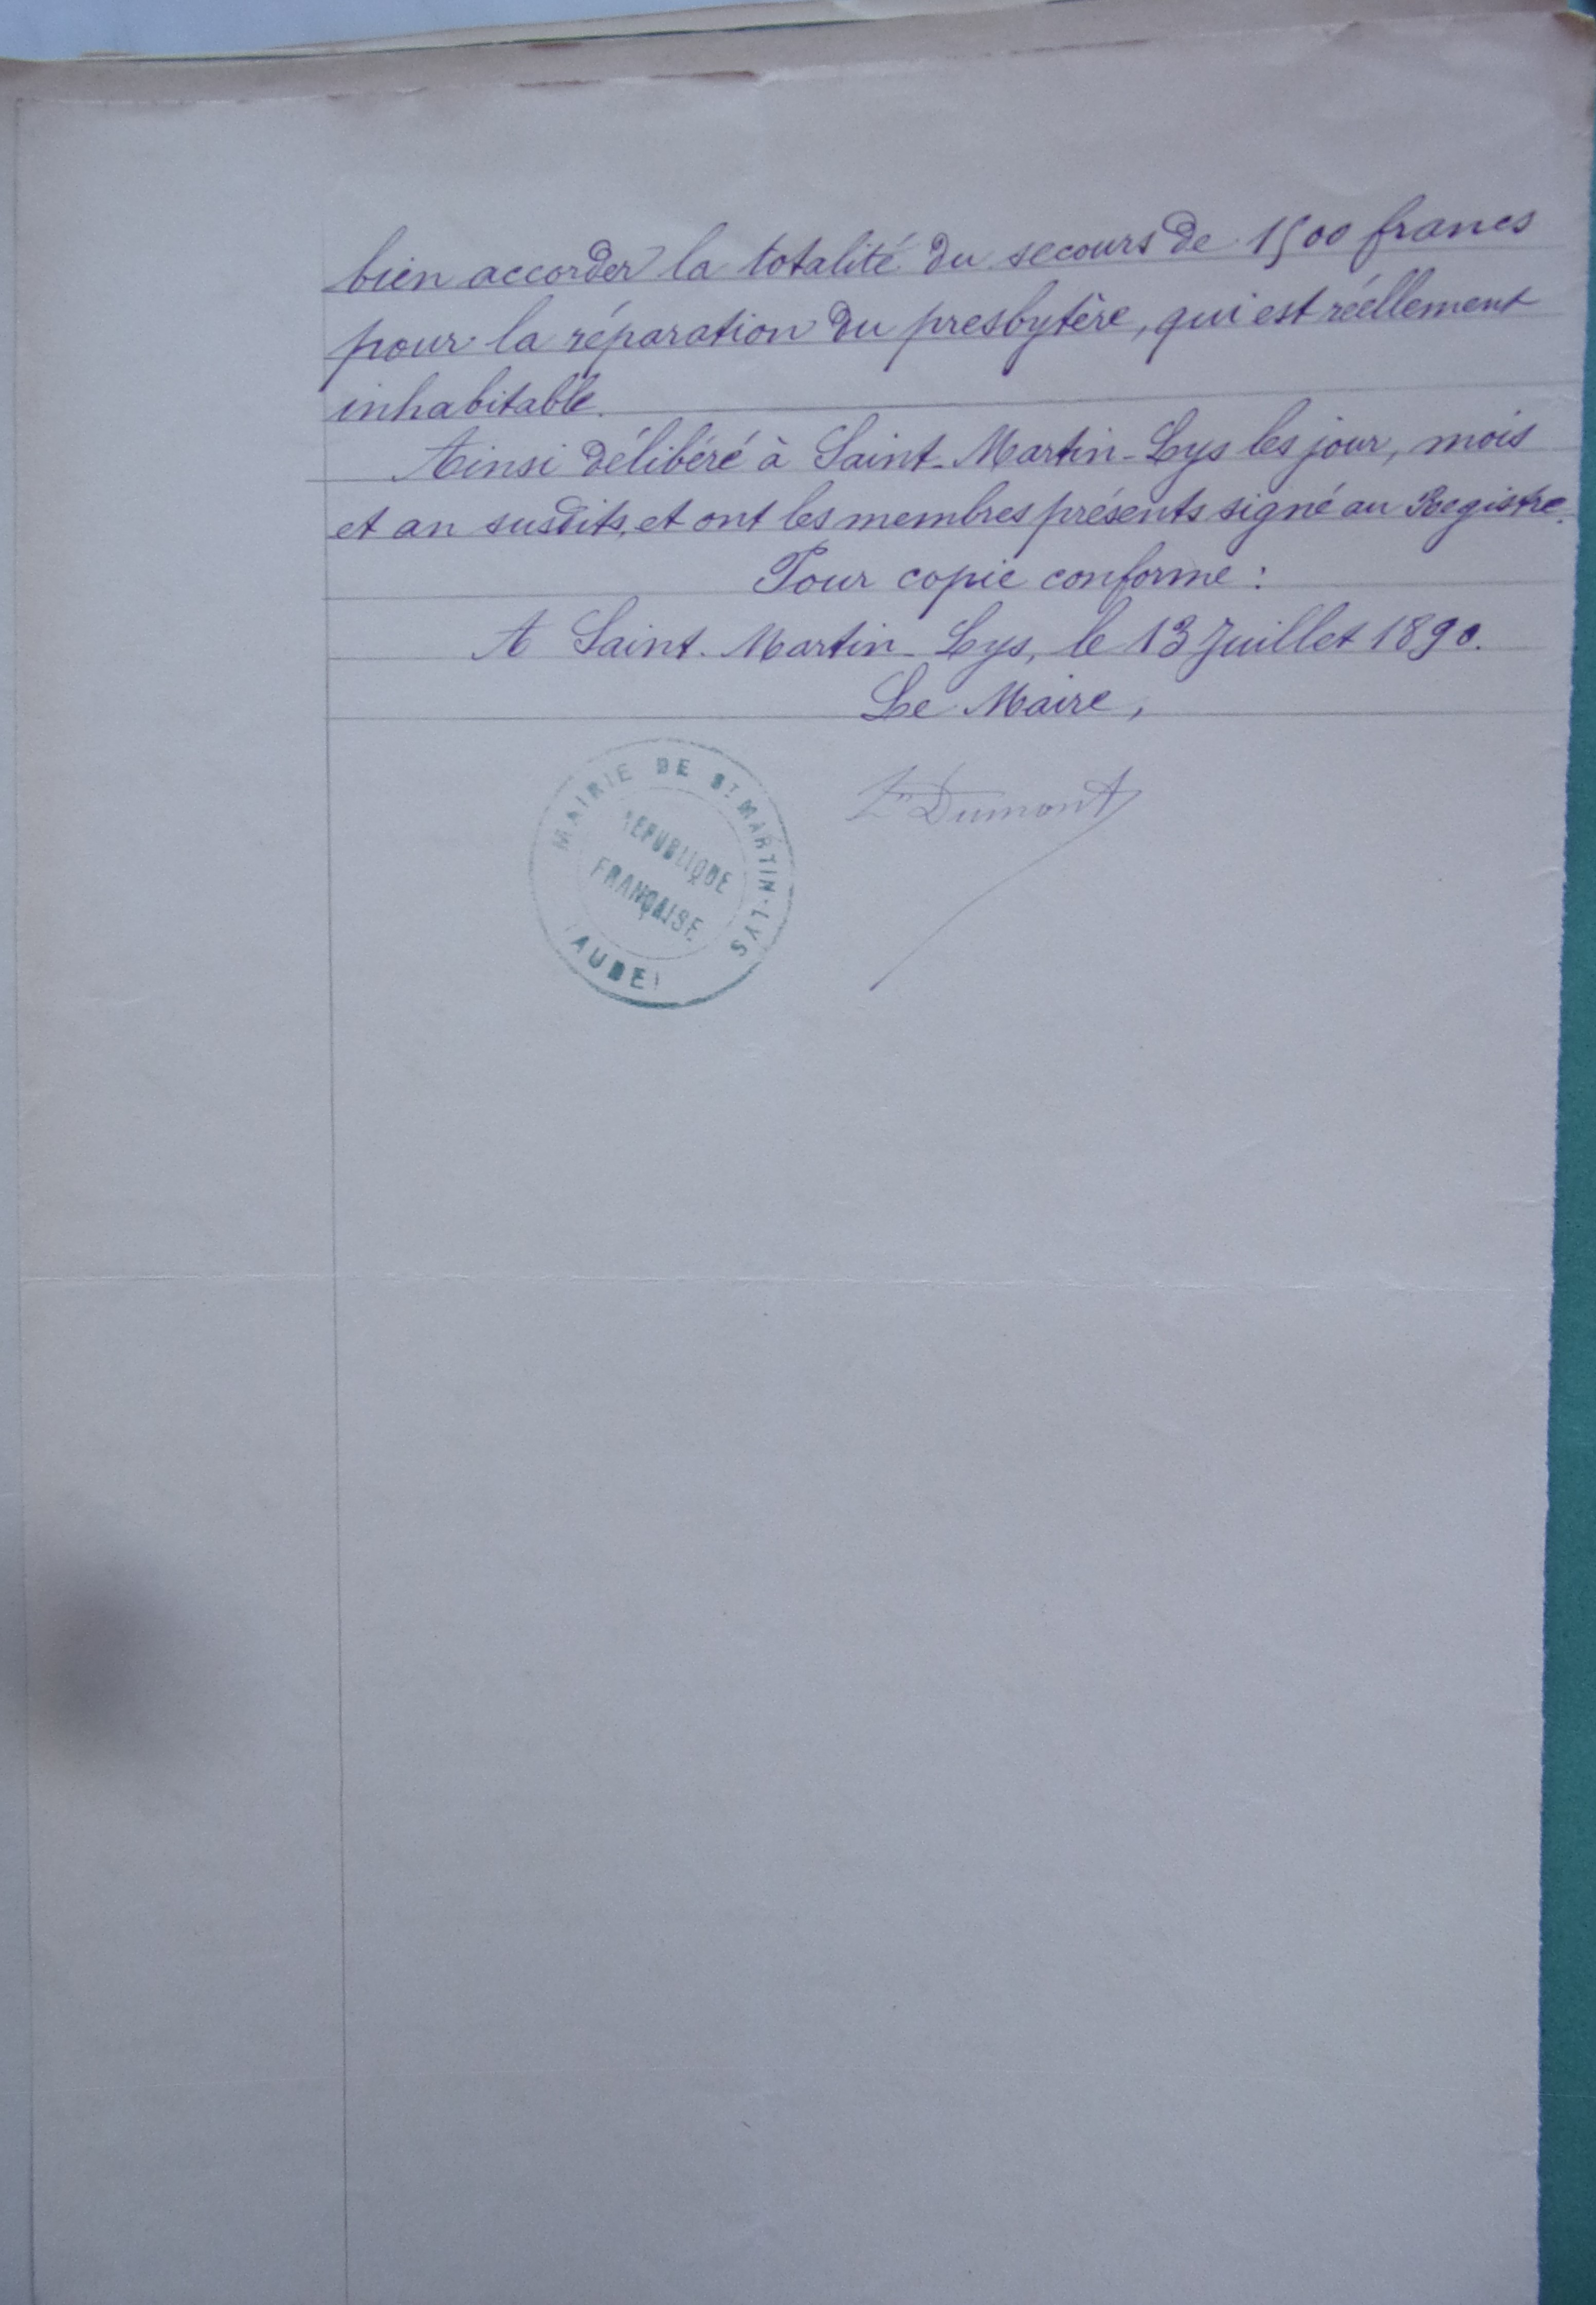 bien accorder la totalité du secours de 1500 francs
pour la réparation du presbytère, qui est réellement
inhabitable.
Ainsi délibéré à Saint-Martin-Lys les jour, mois
et an susdits, et ont les membres présents signé au Registre.
Pour copie conforme :
A Saint-Martin-Lys, le 13 Juillet 1890.
Le Maire,
Dumont
MAIRIE DE ST MARTIN-LYS
RÉPUBLIQUE
FRANÇAISE
(AUDE)